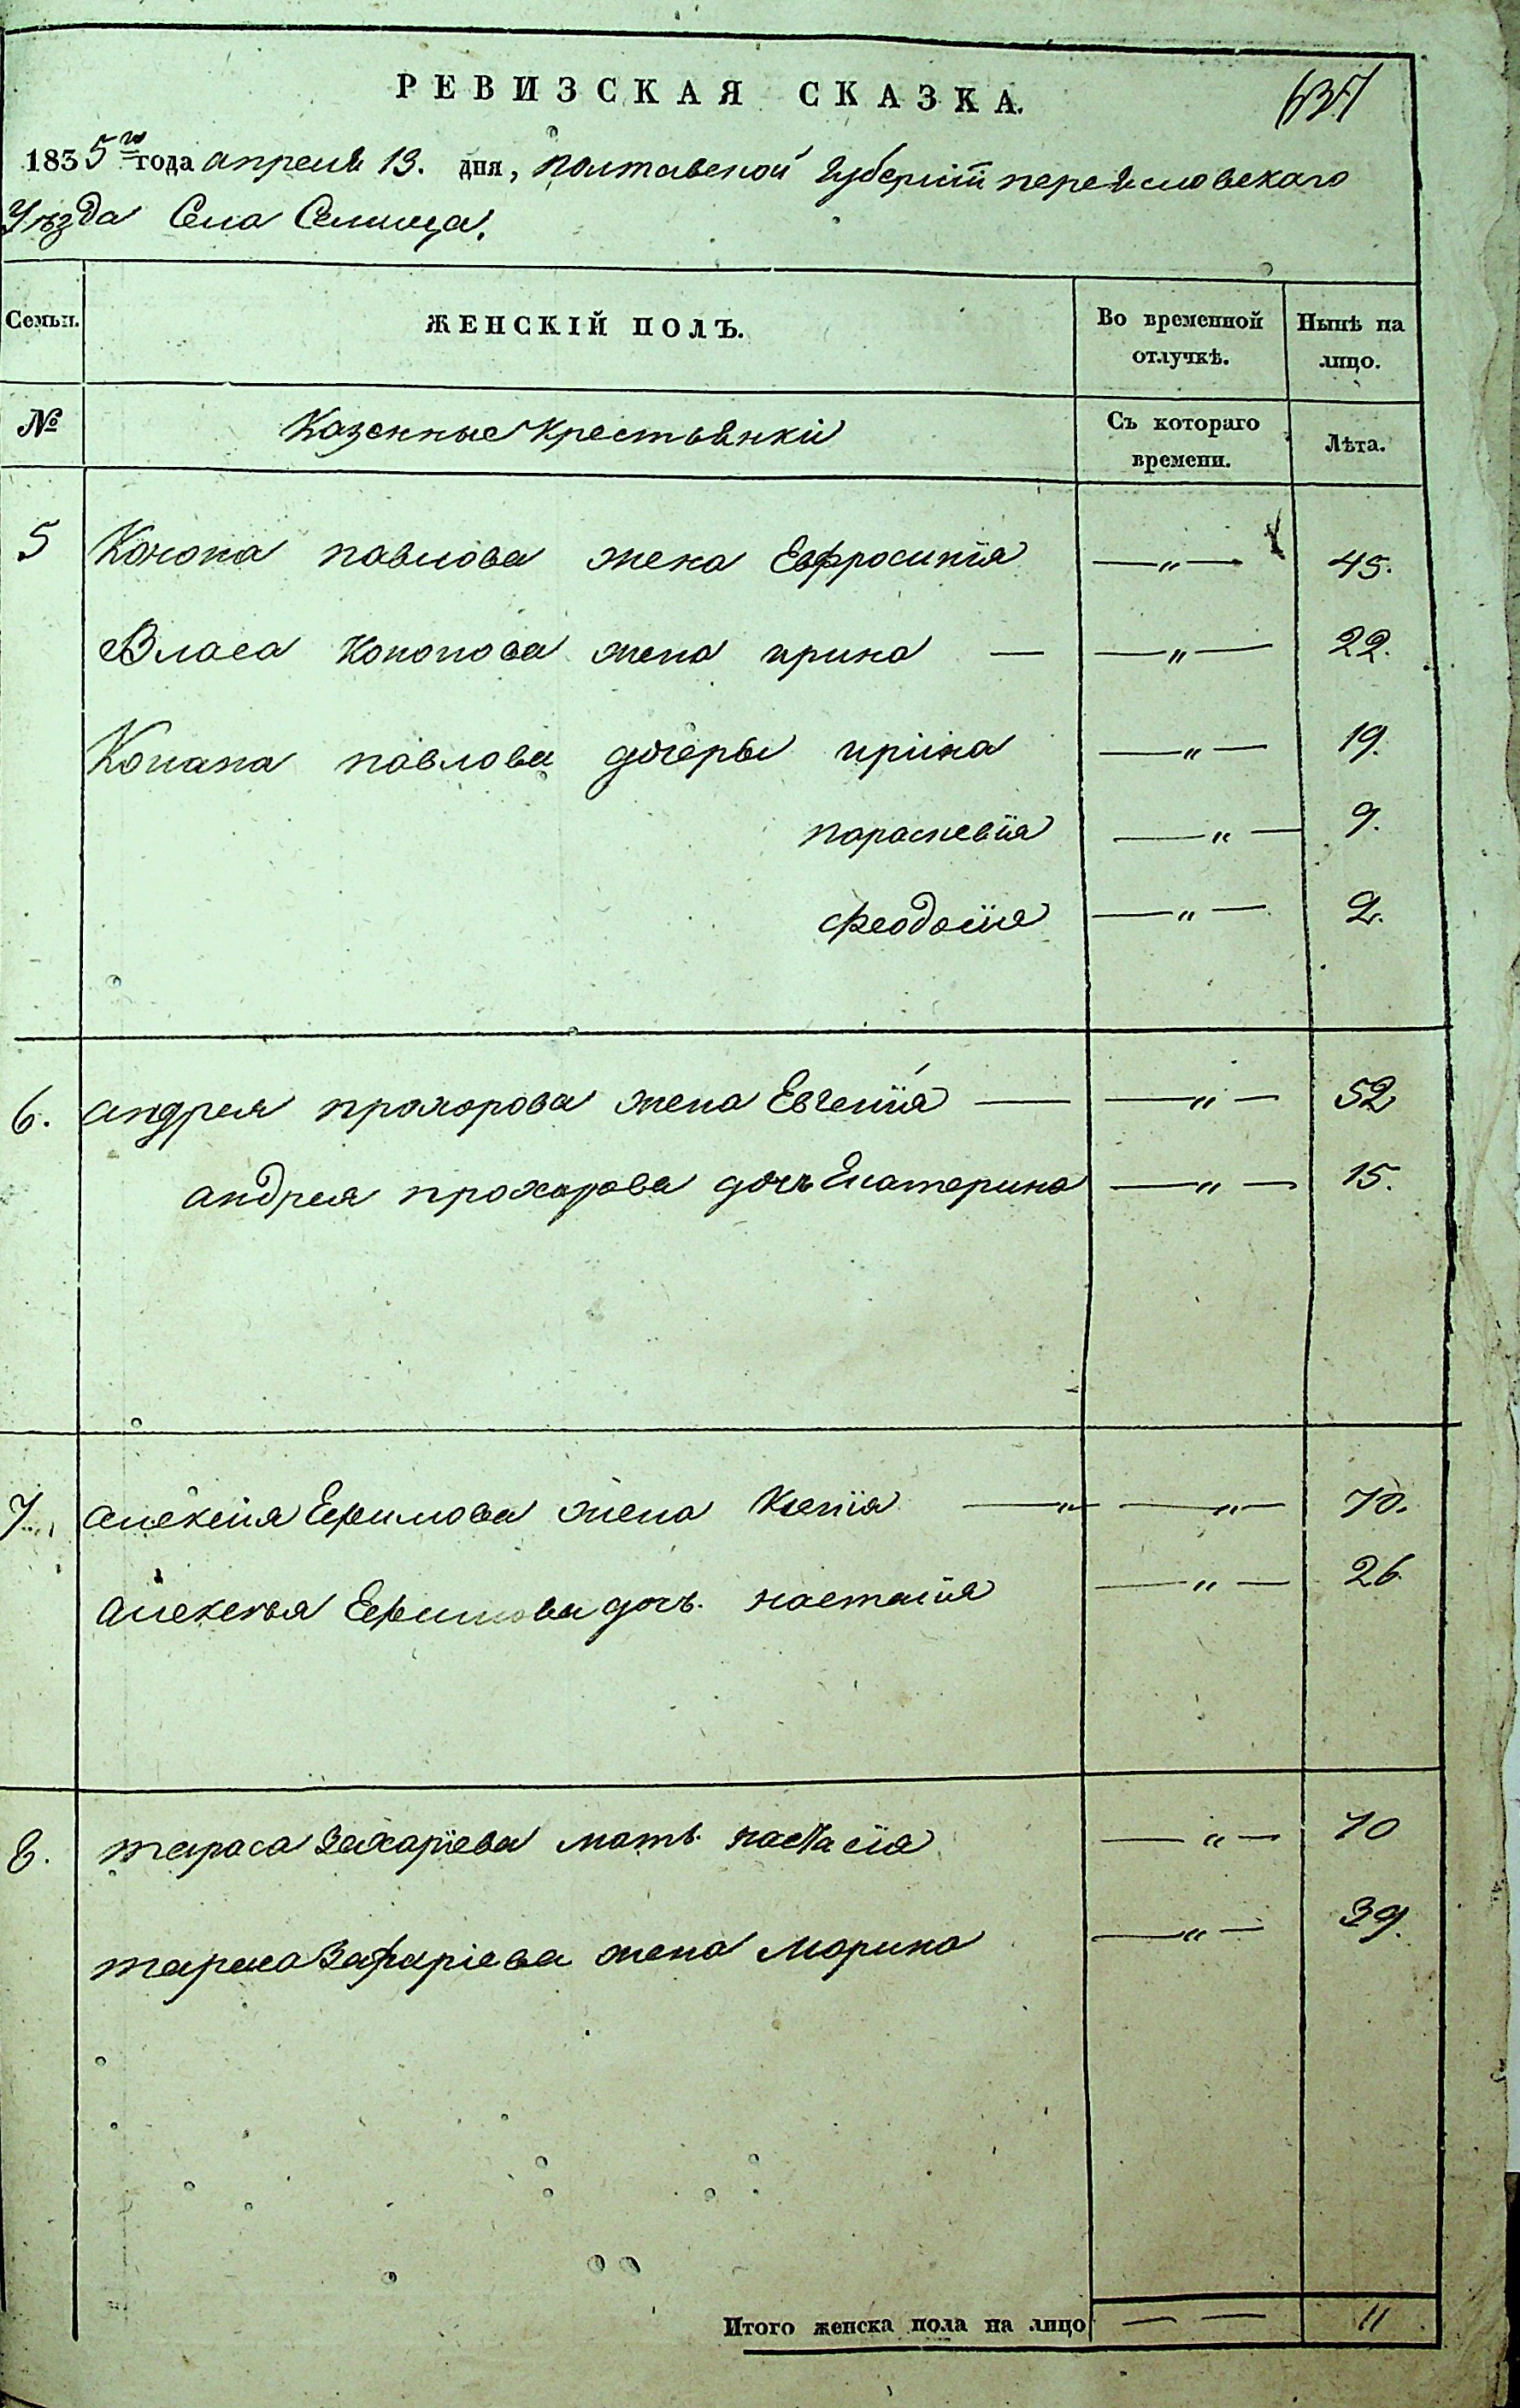 РЕВИЗСКАЯ СКАЗКА.
637
1835го года апреля 13. дня, полтавской губернїи переясловскаго
Уѣзда Села Селища.
Семьи. ЖЕНСКІЙ ПОЛЪ. Во временной отлучкѣ. Нынѣ на лицо.
№ Казенные крестьянкі Съ котораго времени. Лѣта.
5 Конона павлова жена Евфросинїя —„— 45.
Власа Кононова жена ирина — —„— 22.
Конана павлова дочеры ирина —„— 19.
параскевїя —„— 9.
Феодосїя —„— 2.
6. андрея прохорова жена Евгенїя — —„— 52
андрея прохорова дочь Екатерина —„— 15.
7. алексїя Ефимова жена Ксенїя —„— —„— 70.
алексѣя Ефимова дочь. настасїя —„— 26.
8. тараса Захарїева мать настасїя —„— 70
тараса Захаріева жена Марина —„— 39.
Итого женска пола на лицо — — 11